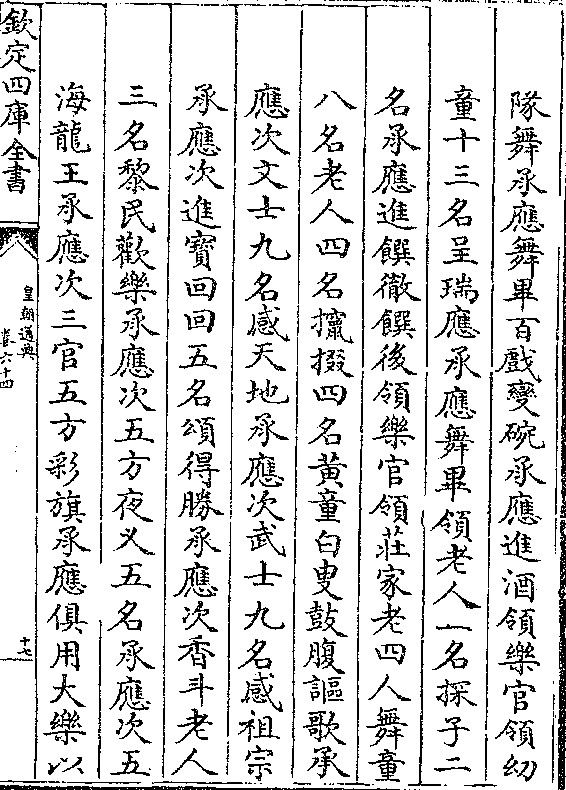 隊舞承應舞畢百戲變碗承應進酒領樂官領幼
童十三名呈瑞應承應舞畢領老人一名探子二
名承應進饌徹饌後領樂官領莊家老四人舞童
八名老人四名攛掇四名黃童白叟鼓腹謳歌承
應次文士九名感天地承應次武士九名感祖宗
承應次進寶回回五名頌得勝承應次香斗老人
三名黎民歡樂承應次五方夜义五名承應次五
海龍王承應次三官五方彩旗承應俱用大樂以
欽定四庫全書
皇朝通典
卷六十四
十七